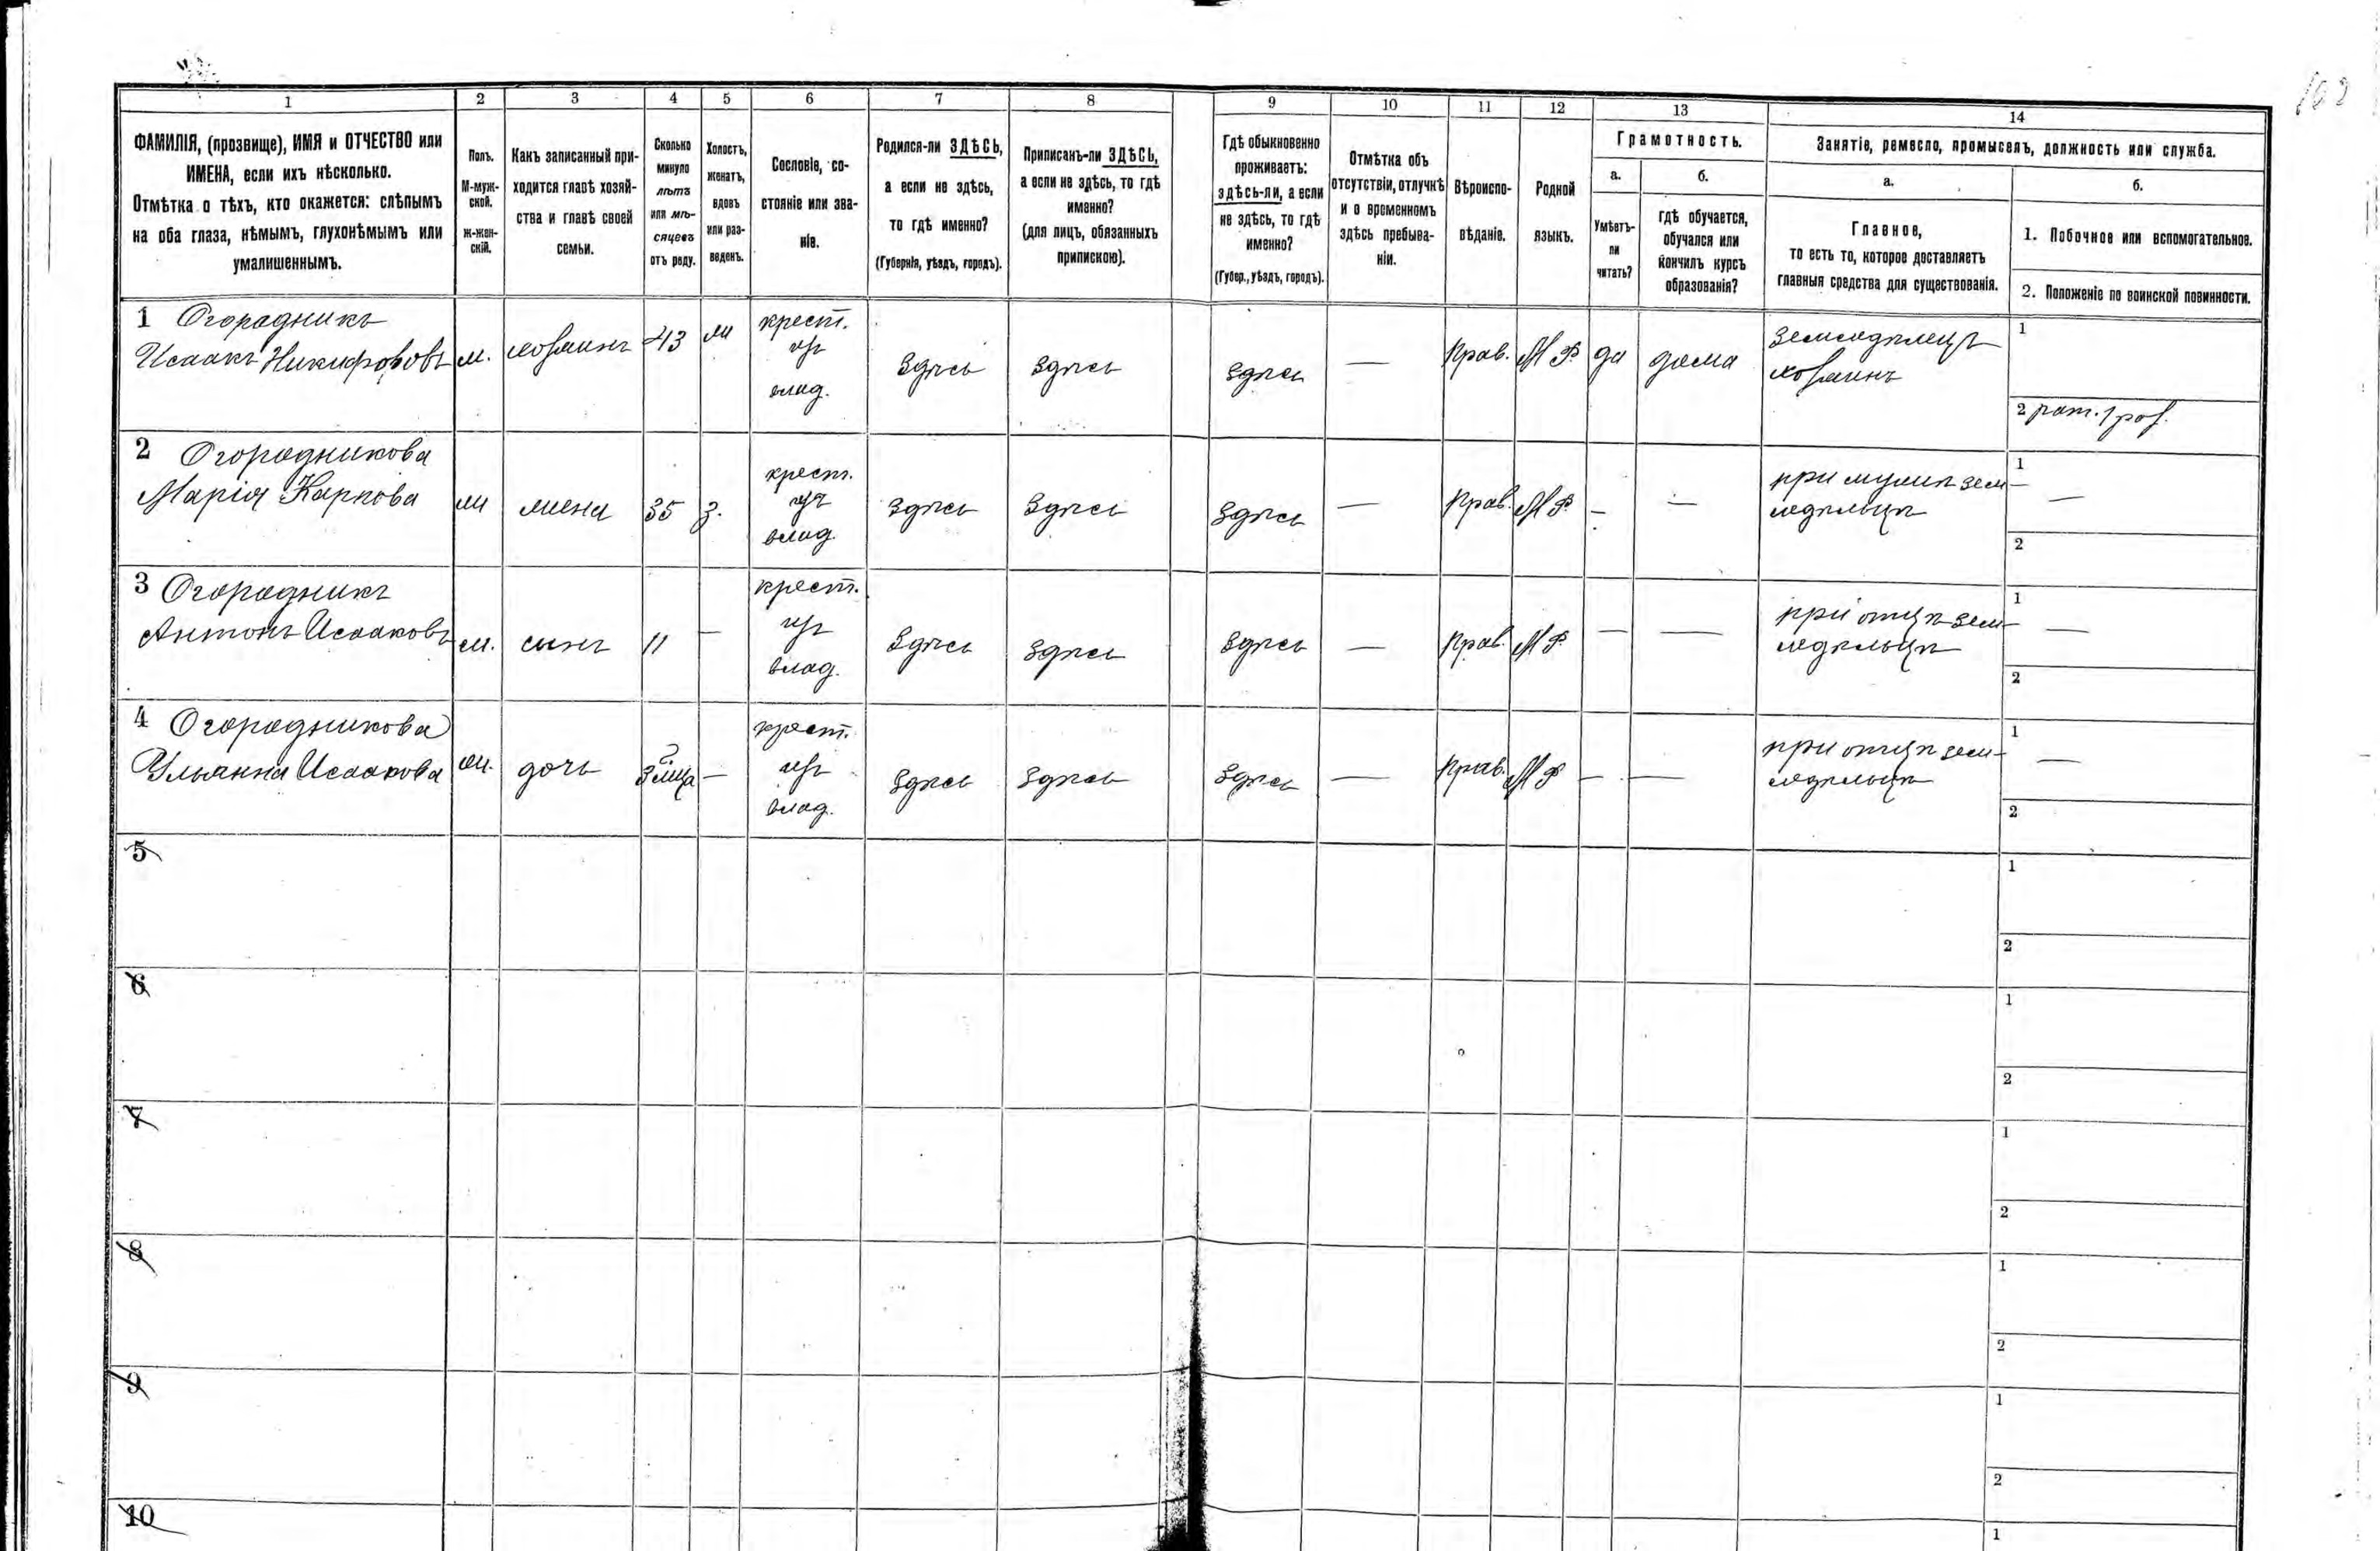 102
1 2 3 4 5 6 7 8 9 10 11 12 13 14
ФАМИЛІЯ, (прозвище), ИМЯ и ОТЧЕСТВО или
ИМЕНА, если ихъ нѣсколько.
Отмѣтка о тѣхъ, кто окажется: слѣпымъ
на оба глаза, нѣмымъ, глухонѣмымъ или
умалишеннымъ.
Полъ.
М-муж-
ской.
Ж-жен-
скій.
Какъ записанный при-
ходится главѣ хозяй-
ства и главѣ своей
семьи.
Сколько
минуло
лѣтъ
или мѣ-
сяцевъ
отъ роду.
Холостъ,
женатъ,
вдовъ
или раз-
веденъ.
Сословіе, со-
стояніе или зва-
ніе.
Родился-ли ЗДѢСЬ,
а если не здѣсь,
то гдѣ именно?
(Губернія, уѣздъ, городъ).
Приписанъ-ли ЗДѢСЬ,
а если не здѣсь, то гдѣ
именно?
(для лицъ, обязанныхъ
припискою).
Гдѣ обыкновенно
проживаетъ:
здѣсь-ли, а если
не здѣсь, то гдѣ
именно?
(Губер., уѣздъ, городъ).
Отмѣтка объ
отсутствіи, отлучкѣ
и о временномъ
здѣсь пребыва-
ніи.
Вѣроиспо-
вѣданіе.
Родной
языкъ.
Грамотность.
а.
Умѣетъ-
ли
читать?
б.
гдѣ обучается,
обучался или
кончилъ курсъ
образованія?
Занятіе, ремесло, промыселъ, должность или служба.
а.
Главное,
то есть то, которое доставляетъ
главныя средства для существованія.
б.
1. Побочное или вспомогательное.
2. Положеніе по воинской повинности.
1 Огородникъ
Исаакъ Никифоровъ
м.
хозяинъ
43
ж
крест.
изъ
влад.
здѣсь
здѣсь
здѣсь
—
Прав.
М Р.
да
дома
земледѣлецъ
хозяинъ
1
2 рат. 1 роз.
2 Огородникова
Марія Карпова
ж
жена
35
з.
крест.
изъ
влад.
здѣсь
здѣсь
здѣсь
—
Прав.
М Р.
—
—
при мужѣ зем-
ледѣльцѣ
1
—
2
3 Огородникъ
Антонъ Исааковъ
м.
сынъ
11
—
крест.
изъ
влад.
здѣсь
здѣсь
здѣсь
—
Прав.
М Р.
—
—
при отцѣ зем-
ледѣльцѣ
1
—
2
4 Огородникова
Ульянна Исаакова
ж.
дочь
3 мца
—
крест.
изъ
влад.
здѣсь
здѣсь
здѣсь
—
Прав.
М Р
—
—
при отцѣ зем-
ледѣльцѣ
1
—
2
5
1
2
6
1
2
7
1
2
8
1
2
9
1
2
10
1